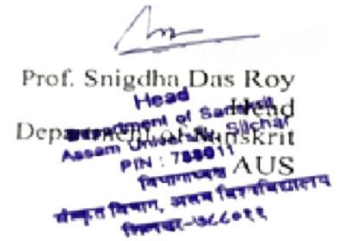 Prof. Snigdha Das Roy
Head
Department of Sanskrit
AUS
Head
Department of Sanskrit
Assam University, Silchar
PIN : 788011
विभागाध्यक्ष
संस्कृत विभाग, असम विश्वविद्यालय
सिलचर-७८८०११